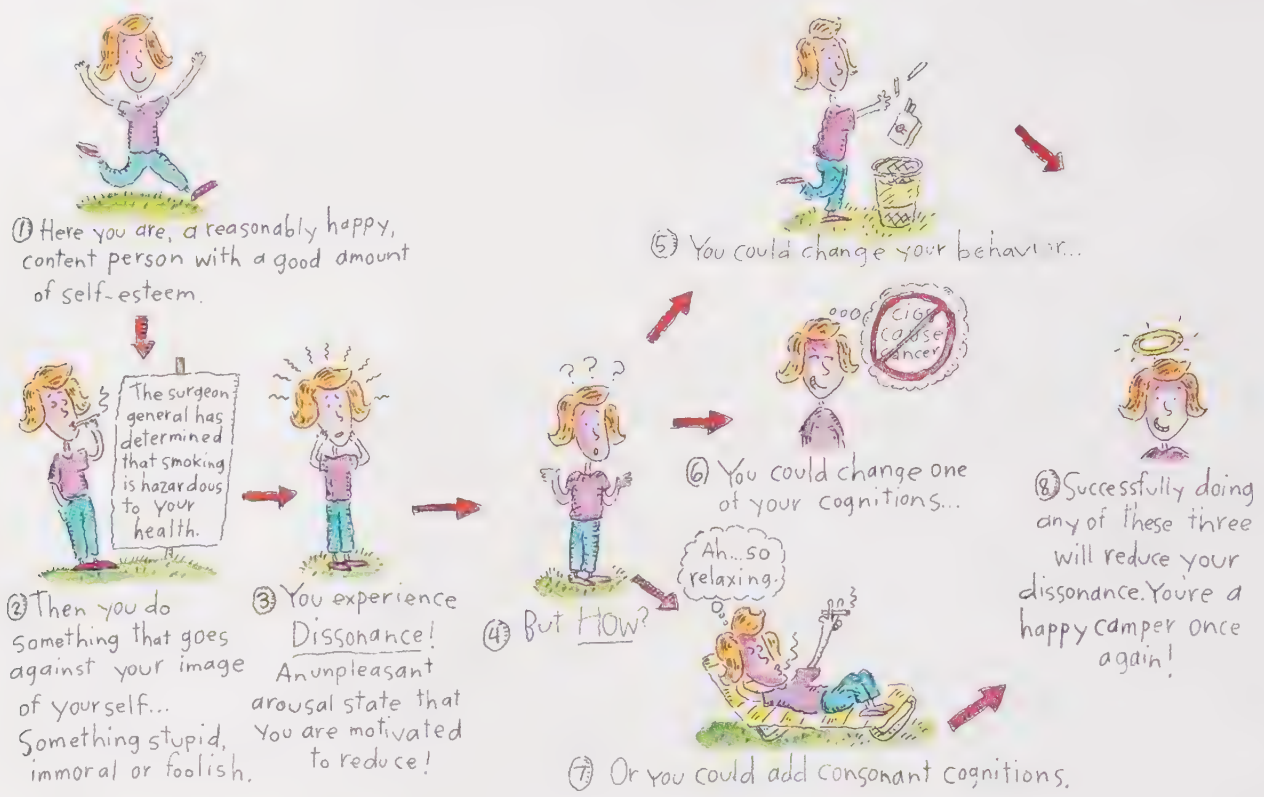 ① Here you are, a reasonably happy,
content person with a good amount
of self-esteem.
The surgeon
general has
determined
that smoking
is hazardous
to your
health.
② Then you do
something that goes
against your image
of yourself...
Something stupid,
immoral or foolish.
③ You experience
Dissonance!
An unpleasant
arousal state that
you are motivated
to reduce!
? ? ?
④ But How?
⑤ You could change your
cigs
cause
cancer
⑥ You could change one
of your cognitions...
Ah...so
relaxing.
⑦ Or you could add consonant cognitions.
⑧ Successfully doing
any of these three
will reduce your
dissonance. You're a
happy camper once
again!